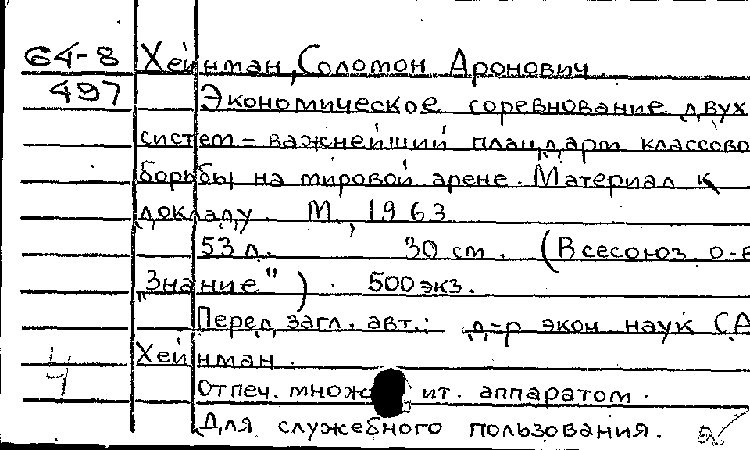 64-8 Хейнман, Соломон Аронович.
497 Экономическое соревнование двух
систем – важнейший плацдарм классово
борьбы на мировой арене. Материал к
докладу. М., 1963
53 л. 30 см. (Всесоюз. о-в
"Знание"). 500 экз.
Перед загл. авт.: д-р экон. наук С.А.
Хейнман.
4
Отпеч. множ ит. аппаратом.
Для служебного пользования.